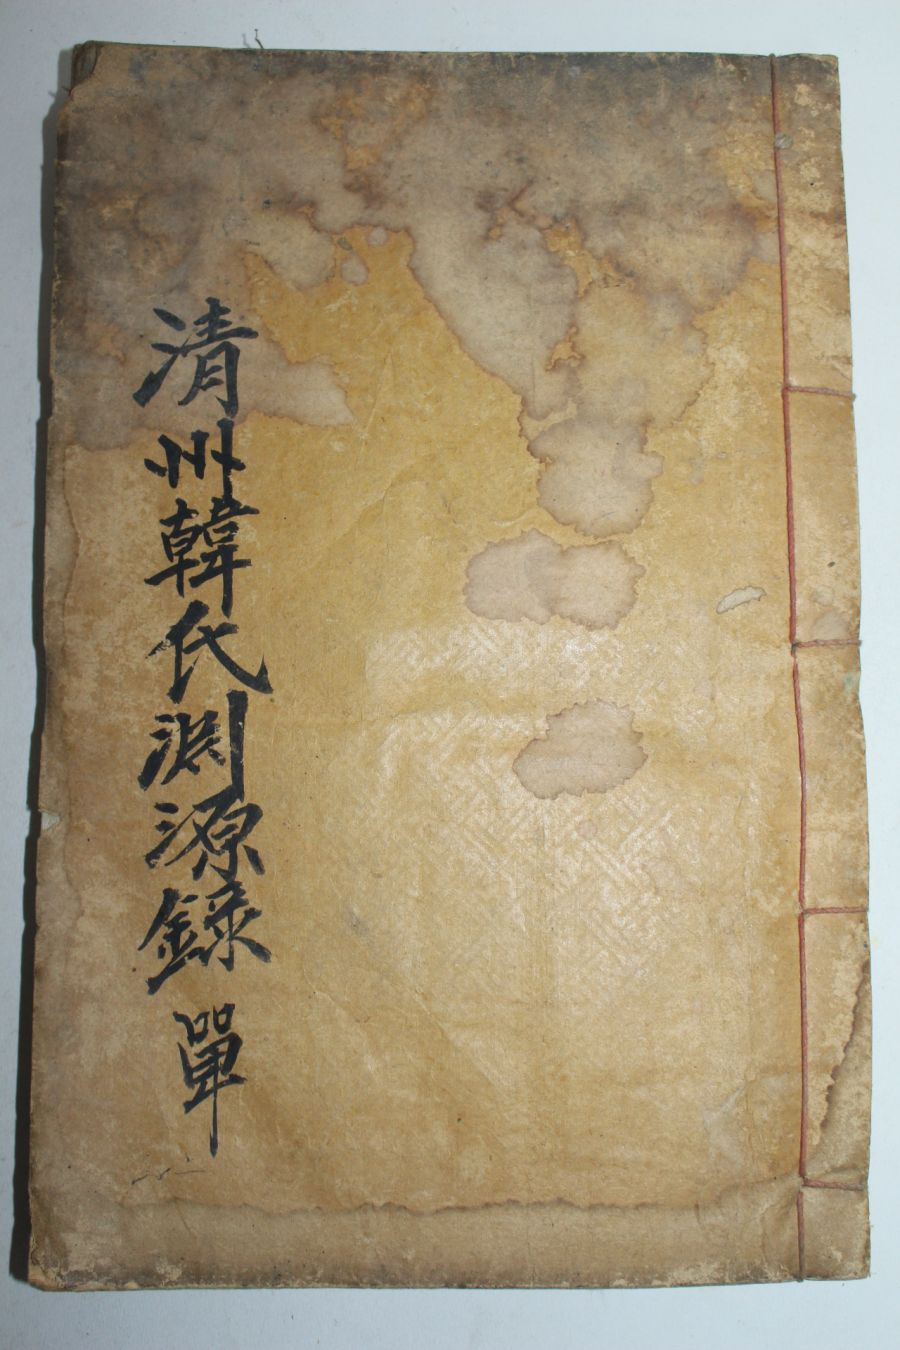 清州韓氏淵源錄 單